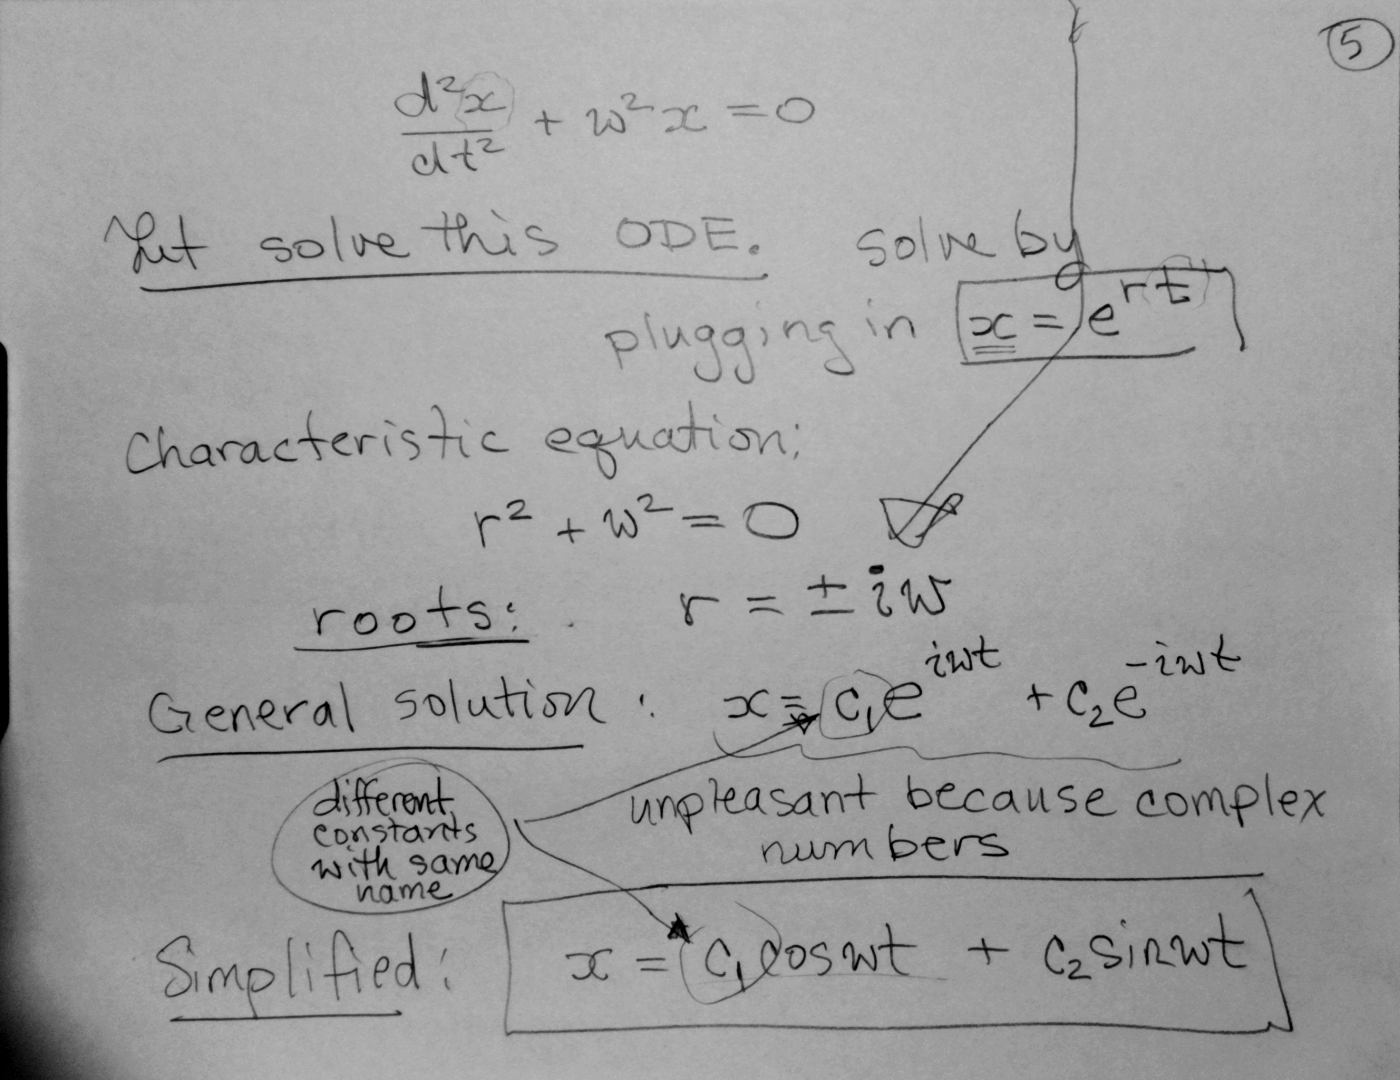 5
d²x/dt² + w²x = 0
Let solve this ODE. solve by
plugging in x = e^{rt}
Characteristic equation:
r² + w² = 0
roots: r = ± iw
General solution : x = c₁e^{iwt} + c₂e^{-iwt}
different
constants
with same
name
unpleasant because complex
numbers
Simplified : x = c₁coswt + c₂sinwt